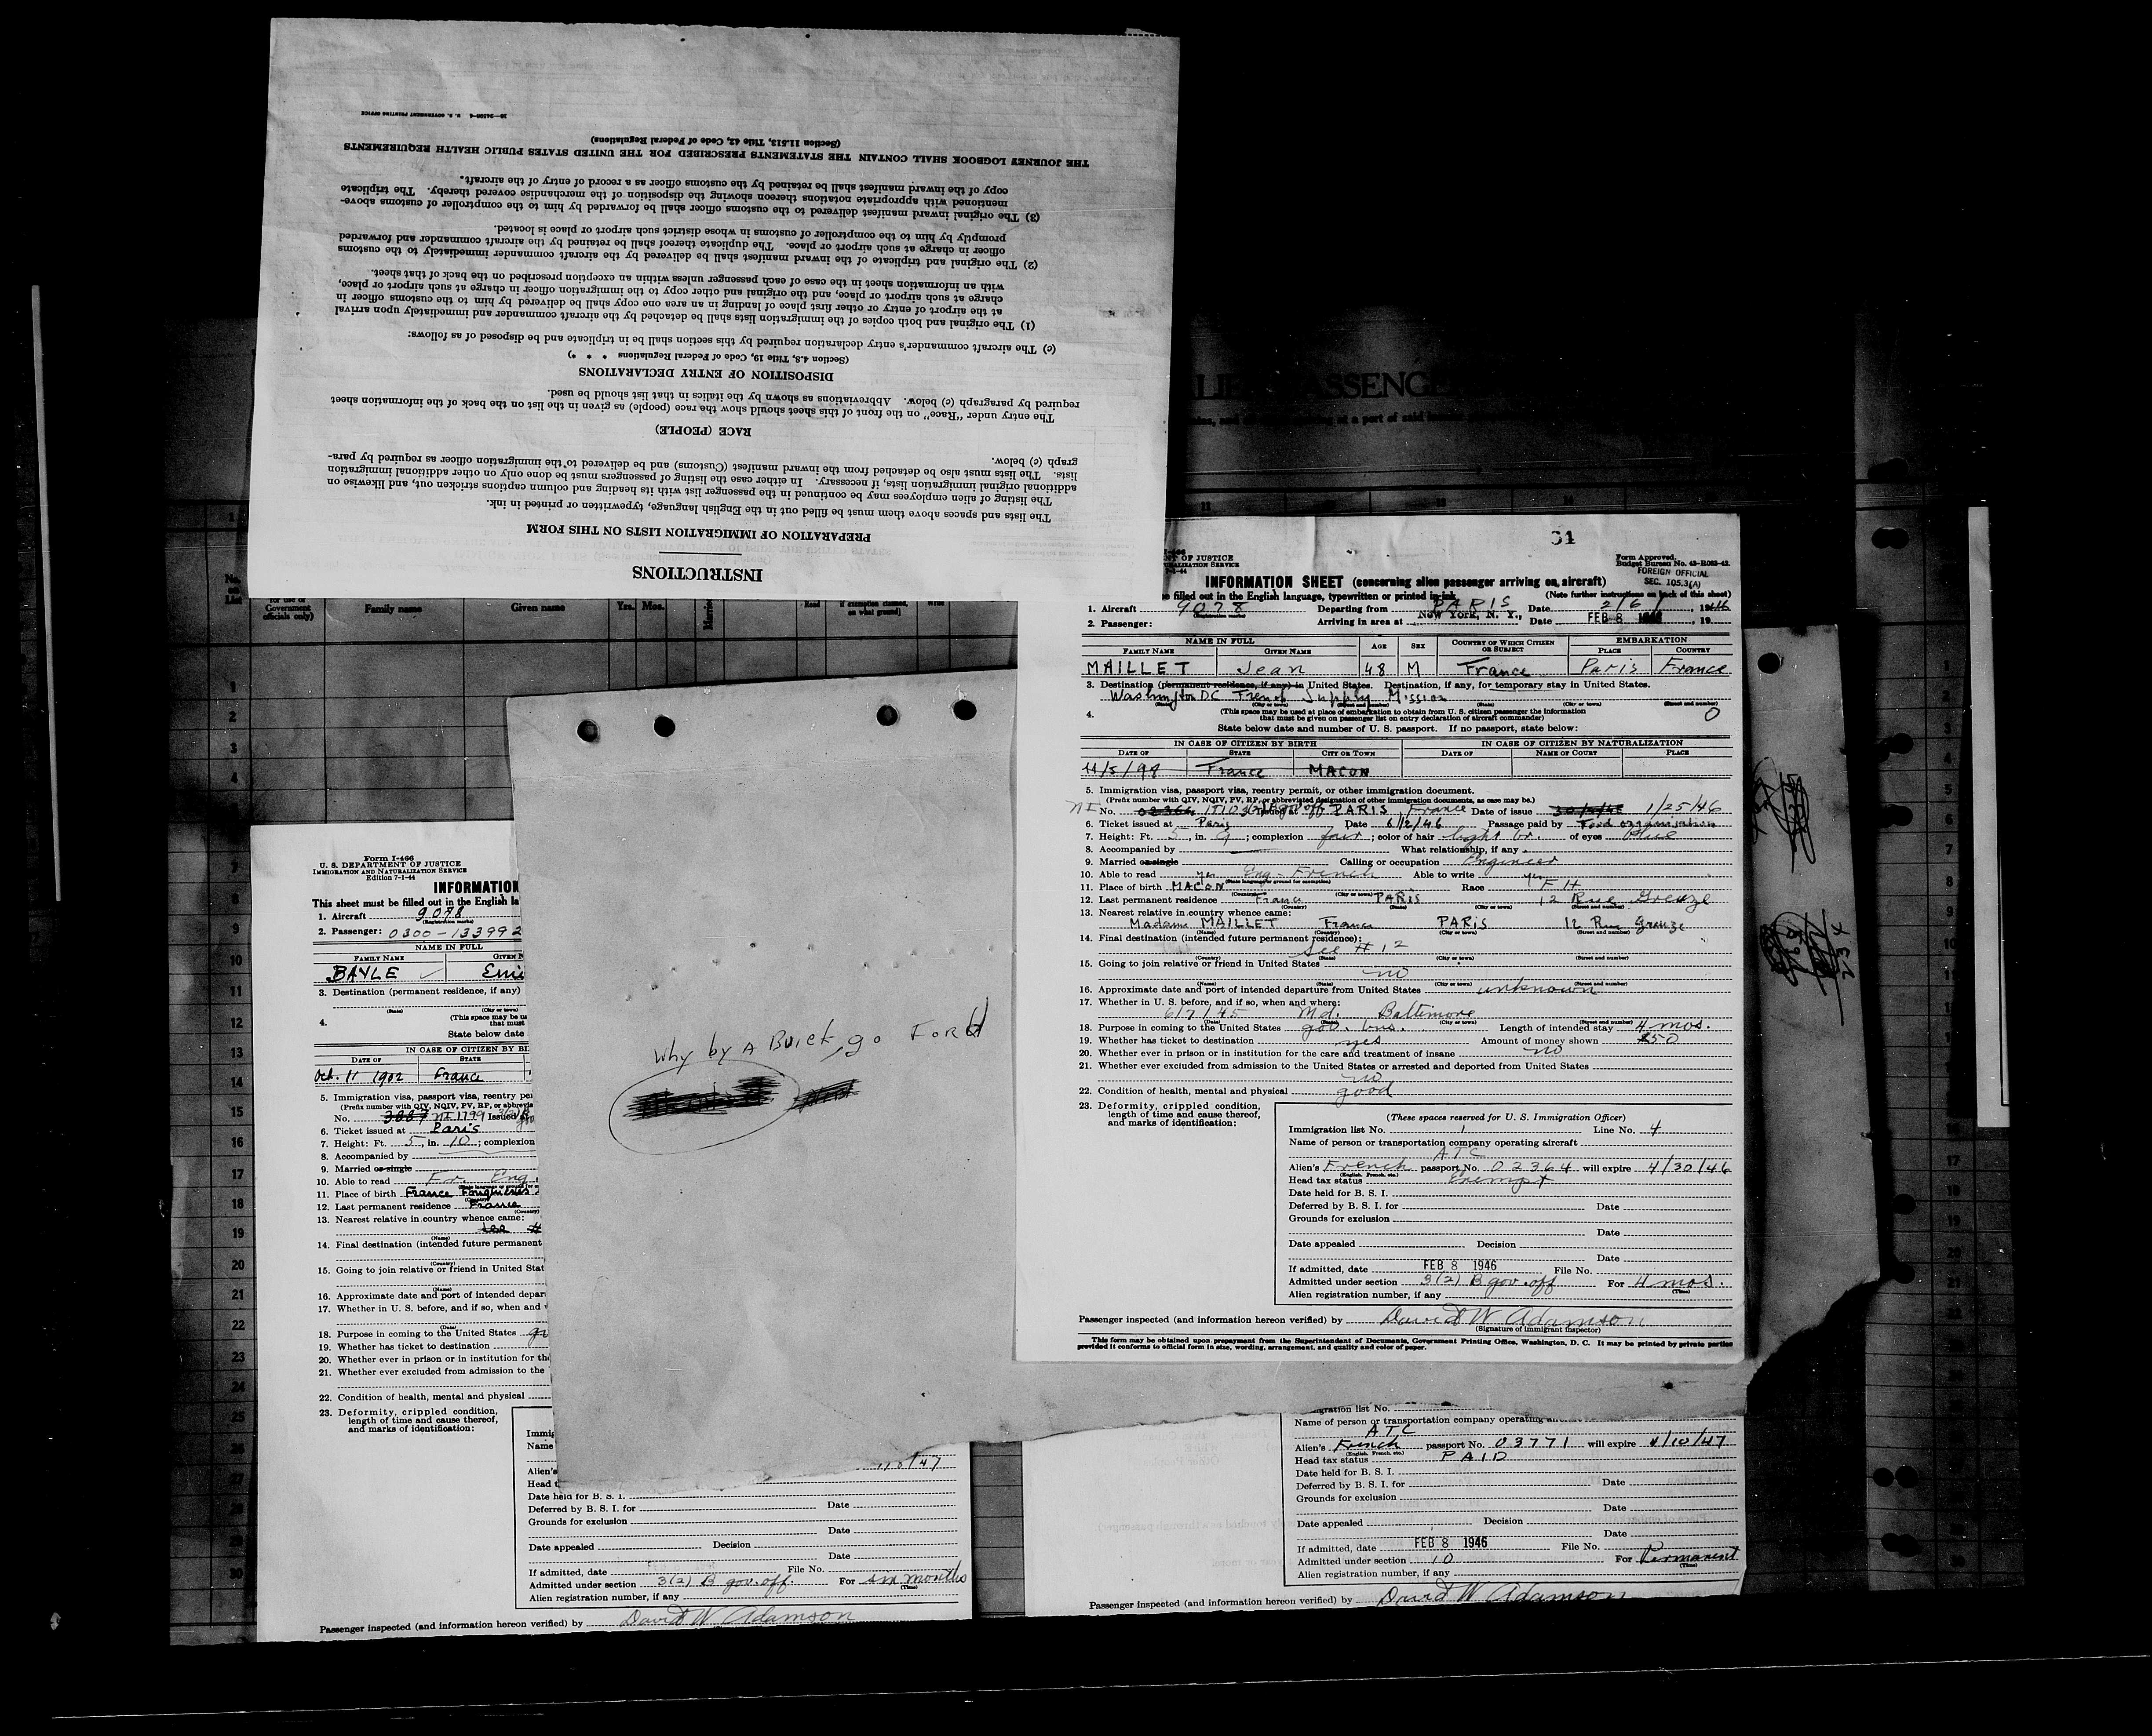 INSTRUCTIONS
PREPARATION OF IMMIGRATION LISTS ON THIS FORM
The lists and spaces above them must be filled out in the English language, typewritten or printed in ink.
The listing of alien employees may be continued in the passenger list with its heading and column captions stricken out, and likewise on
additional original immigration lists, if necessary. In either case the listing of passengers must be done only on other additional immigration
lists. The lists must also be detached from the inward manifest (Customs) and be delivered to the immigration officer as required by para-
graph (c) below.
RACE (PEOPLE)
The entry under "Race" on the front of this sheet should show the race (people) as given in the list on the back of the information sheet
required by paragraph (c) below. Abbreviations as shown by the italics in that list should be used.
DISPOSITION OF ENTRY DECLARATIONS
(Section 4.8, Title 19, Code of Federal Regulations * * *)
(c) The aircraft commander's entry declaration required by this section shall be in triplicate and be disposed of as follows:
(1) The original and both copies of the immigration lists shall be detached by the aircraft commander and immediately upon arrival
at the airport of entry or other first place of landing in an area one copy shall be delivered by him to the customs officer in
charge at such airport or place, and the original and other copy to the immigration officer in charge at such airport or place,
with an information sheet in the case of each passenger unless within an exception prescribed on the back of that sheet.
(2) The original and triplicate of the inward manifest shall be delivered by the aircraft commander immediately to the customs
officer in charge at such airport or place. The duplicate thereof shall be retained by the aircraft commander and forwarded
promptly by him to the comptroller of customs in whose district such airport or place is located.
(3) The original inward manifest delivered to the customs officer shall be forwarded by him to the comptroller of customs above-
mentioned with appropriate notations thereon showing the disposition of the merchandise covered thereby. The triplicate
copy of the inward manifest shall be retained by the customs officer as a record of entry of the aircraft.
THE JOURNEY LOGBOOK SHALL CONTAIN THE STATEMENTS PRESCRIBED FOR THE UNITED STATES PUBLIC HEALTH REQUIREMENTS
(Section 11.513, Title 42, Code of Federal Regulations)
U. S. GOVERNMENT PRINTING OFFICE
Family name Given name Yrs. Mos.
31
I-466
NT OF JUSTICE
URALIZATION SERVICE
7-1-44
Form Approved.
Budget Bureau No. 43-R083-42.
FOREIGN OFFICIAL
SEC. 105.3(A)
INFORMATION SHEET (concerning alien passenger arriving on aircraft)
e filled out in the English language, typewritten or printed in ink (Note further instructions on back of this sheet)
1. Aircraft 9078 Departing from PARIS Date 2/6/, 1946
(Registration marks)
2. Passenger: Arriving in area at New York, N. Y., Date FEB 8 1946, 19
NAME IN FULL AGE SEX COUNTRY OF WHICH CITIZEN OR SUBJECT EMBARKATION
FAMILY NAME GIVEN NAME PLACE COUNTRY
MAILLET Jean 48 M France Paris France
3. Destination (permanent residence, if any) in United States. Destination, if any, for temporary stay in United States.
Washington DC French Supply Mission
(State) (City or town) (Street and number) (State) (City or town) (Street and number)
4. (This space may be used at place of embarkation to obtain from U. S. citizen passenger the information
that must be given on passenger list on entry declaration of aircraft commander) 0
State below date and number of U. S. passport. If no passport, state below:
IN CASE OF CITIZEN BY BIRTH IN CASE OF CITIZEN BY NATURALIZATION
DATE OF STATE CITY OR TOWN DATE OF NAME OF COURT PLACE
11/5/98 France MACON
5. Immigration visa, passport visa, reentry permit, or other immigration document.
(Prefix number with QIV, NQIV, PV, RP, or abbreviated designation of other immigration documents, as case may be.)
No. 02364 Issued at PARIS France Date of issue 1/25/46
6. Ticket issued at Paris Date 6/2/46 Passage paid by Ford organisation
7. Height: Ft. 5, in. 9; complexion fair; color of hair light br. of eyes blue
8. Accompanied by What relationship, if any
9. Married or single Calling or occupation Engineer
10. Able to read yes Eng - French Able to write yes
(State language or ground for exemption)
11. Place of birth MACON France Race FH
(Country) (City or town)
12. Last permanent residence France PARIS 12 Rue Greuze
(Country) (State) (City or town) (Street and number)
13. Nearest relative in country whence came:
Madame MAILLET France PARIS 12 Rue Greuze
(Name) (Country) (City or town) (Street and number)
14. Final destination (intended future permanent residence):
See # 12
(Country) (State) (City or town) (Street and number)
15. Going to join relative or friend in United States
no
(Name) (State) (City or town) (Street and number)
16. Approximate date and port of intended departure from United States unknown
17. Whether in U. S. before, and if so, when and where:
6/7/45 Md. Baltimore
(Date) (State) (City or town) (Street and number)
18. Purpose in coming to the United States gov. bus. Length of intended stay 4 mos.
19. Whether has ticket to destination yes Amount of money shown $50
20. Whether ever in prison or in institution for the care and treatment of insane no
21. Whether ever excluded from admission to the United States or arrested and deported from United States
no
22. Condition of health, mental and physical good
23. Deformity, crippled condition,
length of time and cause thereof,
and marks of identification:
(These spaces reserved for U. S. Immigration Officer)
Immigration list No. 1 Line No. 4
Name of person or transportation company operating aircraft
ATC
Alien's French passport No. 02364 will expire 4/30/46
(English, French, etc.)
Head tax status Exempt
Date held for B. S. I.
Deferred by B. S. I. for Date
Grounds for exclusion
Date
Date appealed Decision
Date
If admitted, date FEB 8 1946 File No.
Admitted under section 3(2) B gov. off For 4 mos.
(Time)
Alien registration number, if any
Passenger inspected (and information hereon verified) by David W Adamson
(Signature of immigrant inspector)
This form may be obtained upon prepayment from the Superintendent of Documents, Government Printing Office, Washington, D. C. It may be printed by private parties
provided it conforms to official form in size, wording, arrangement, and quality and color of paper.
Why by A Buick, go Ford
Form I-466
U. S. DEPARTMENT OF JUSTICE
IMMIGRATION AND NATURALIZATION SERVICE
Edition 7-1-44
INFORMATION
This sheet must be filled out in the English la
1. Aircraft 9078
(Registration marks)
2. Passenger: 0300-133992
NAME IN FULL
FAMILY NAME GIVEN N
BAYLE Emi
3. Destination (permanent residence, if any)
(State) (City or town)
4. (This space may be us
that must
State below date
IN CASE OF CITIZEN BY BI
DATE OF STATE
Oct. 11 1902 France
5. Immigration visa, passport visa, reentry per
(Prefix number with QIV, NQIV, PV, RP, or abbrevia
No. 3007 1199 Issued at
6. Ticket issued at Paris
7. Height: Ft. 5, in. 10; complexion
8. Accompanied by
9. Married or single
10. Able to read Fr. Eng.
11. Place of birth France
12. Last permanent residence France
(Country)
13. Nearest relative in country whence came:
See #
(Name)
14. Final destination (intended future permanent
(Country)
15. Going to join relative or friend in United Stat
(Name)
16. Approximate date and port of intended depar
17. Whether in U. S. before, and if so, when and w
(Date)
18. Purpose in coming to the United States
19. Whether has ticket to destination
20. Whether ever in prison or in institution for the
21. Whether ever excluded from admission to the
22. Condition of health, mental and physical
23. Deformity, crippled condition,
length of time and cause thereof,
and marks of identification:
Immig
Name
Alien's
Head t
Date held for B. S. I.
Deferred by B. S. I. for Date
Grounds for exclusion
Date
Date appealed Decision
Date
If admitted, date File No.
Admitted under section 3(2) B gov. off For six months
(Time)
Alien registration number, if any
Passenger inspected (and information hereon verified) by David W Adamson
gration list No.
Name of person or transportation company operating
ATC
Alien's French passport No. 03771 will expire 1/10/47
(English, French, etc.)
Head tax status PAID
Date held for B. S. I.
Deferred by B. S. I. for Date
Grounds for exclusion
Date
Date appealed Decision
Date
If admitted, date FEB 8 1946 File No.
Admitted under section 10 For Permanent
(Time)
Alien registration number, if any
Passenger inspected (and information hereon verified) by David W Adamson